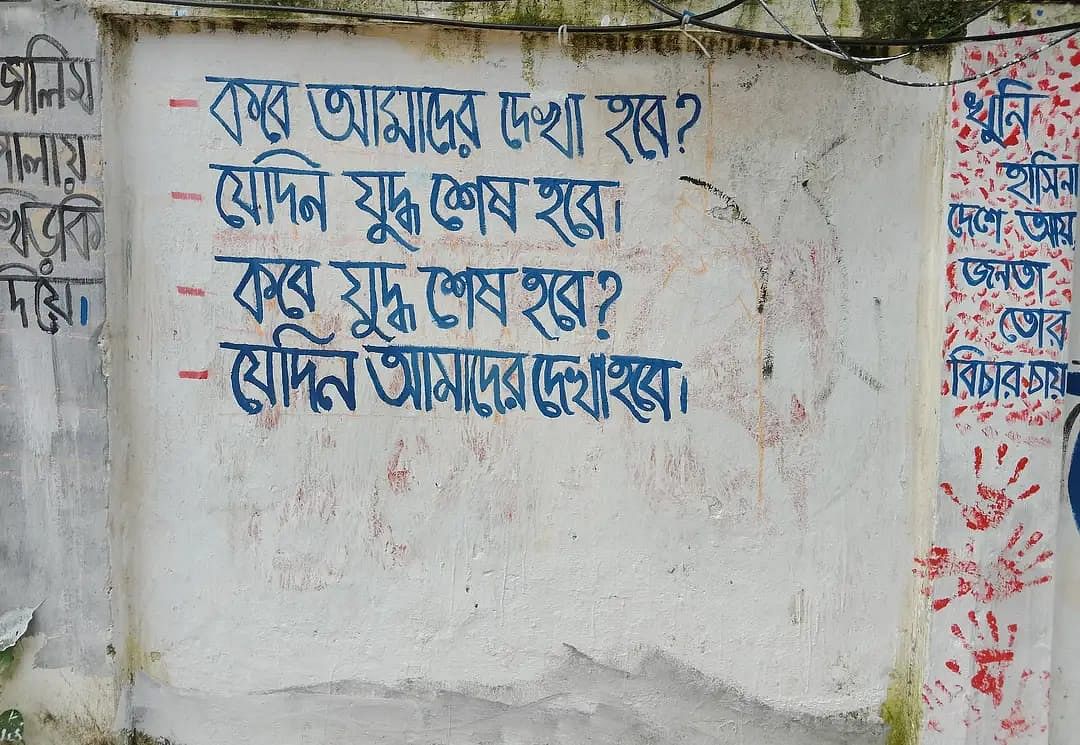 জালিম
পালায়
খিড়কি
দিয়ে।
- কবে আমাদের দেখা হবে?
- যেদিন যুদ্ধ শেষ হবে।
- কবে যুদ্ধ শেষ হবে?
- যেদিন আমাদের দেখা হবে।
খুনি
হাসিনা
দেশে আয়
জনতা
তোর
বিচার চায়